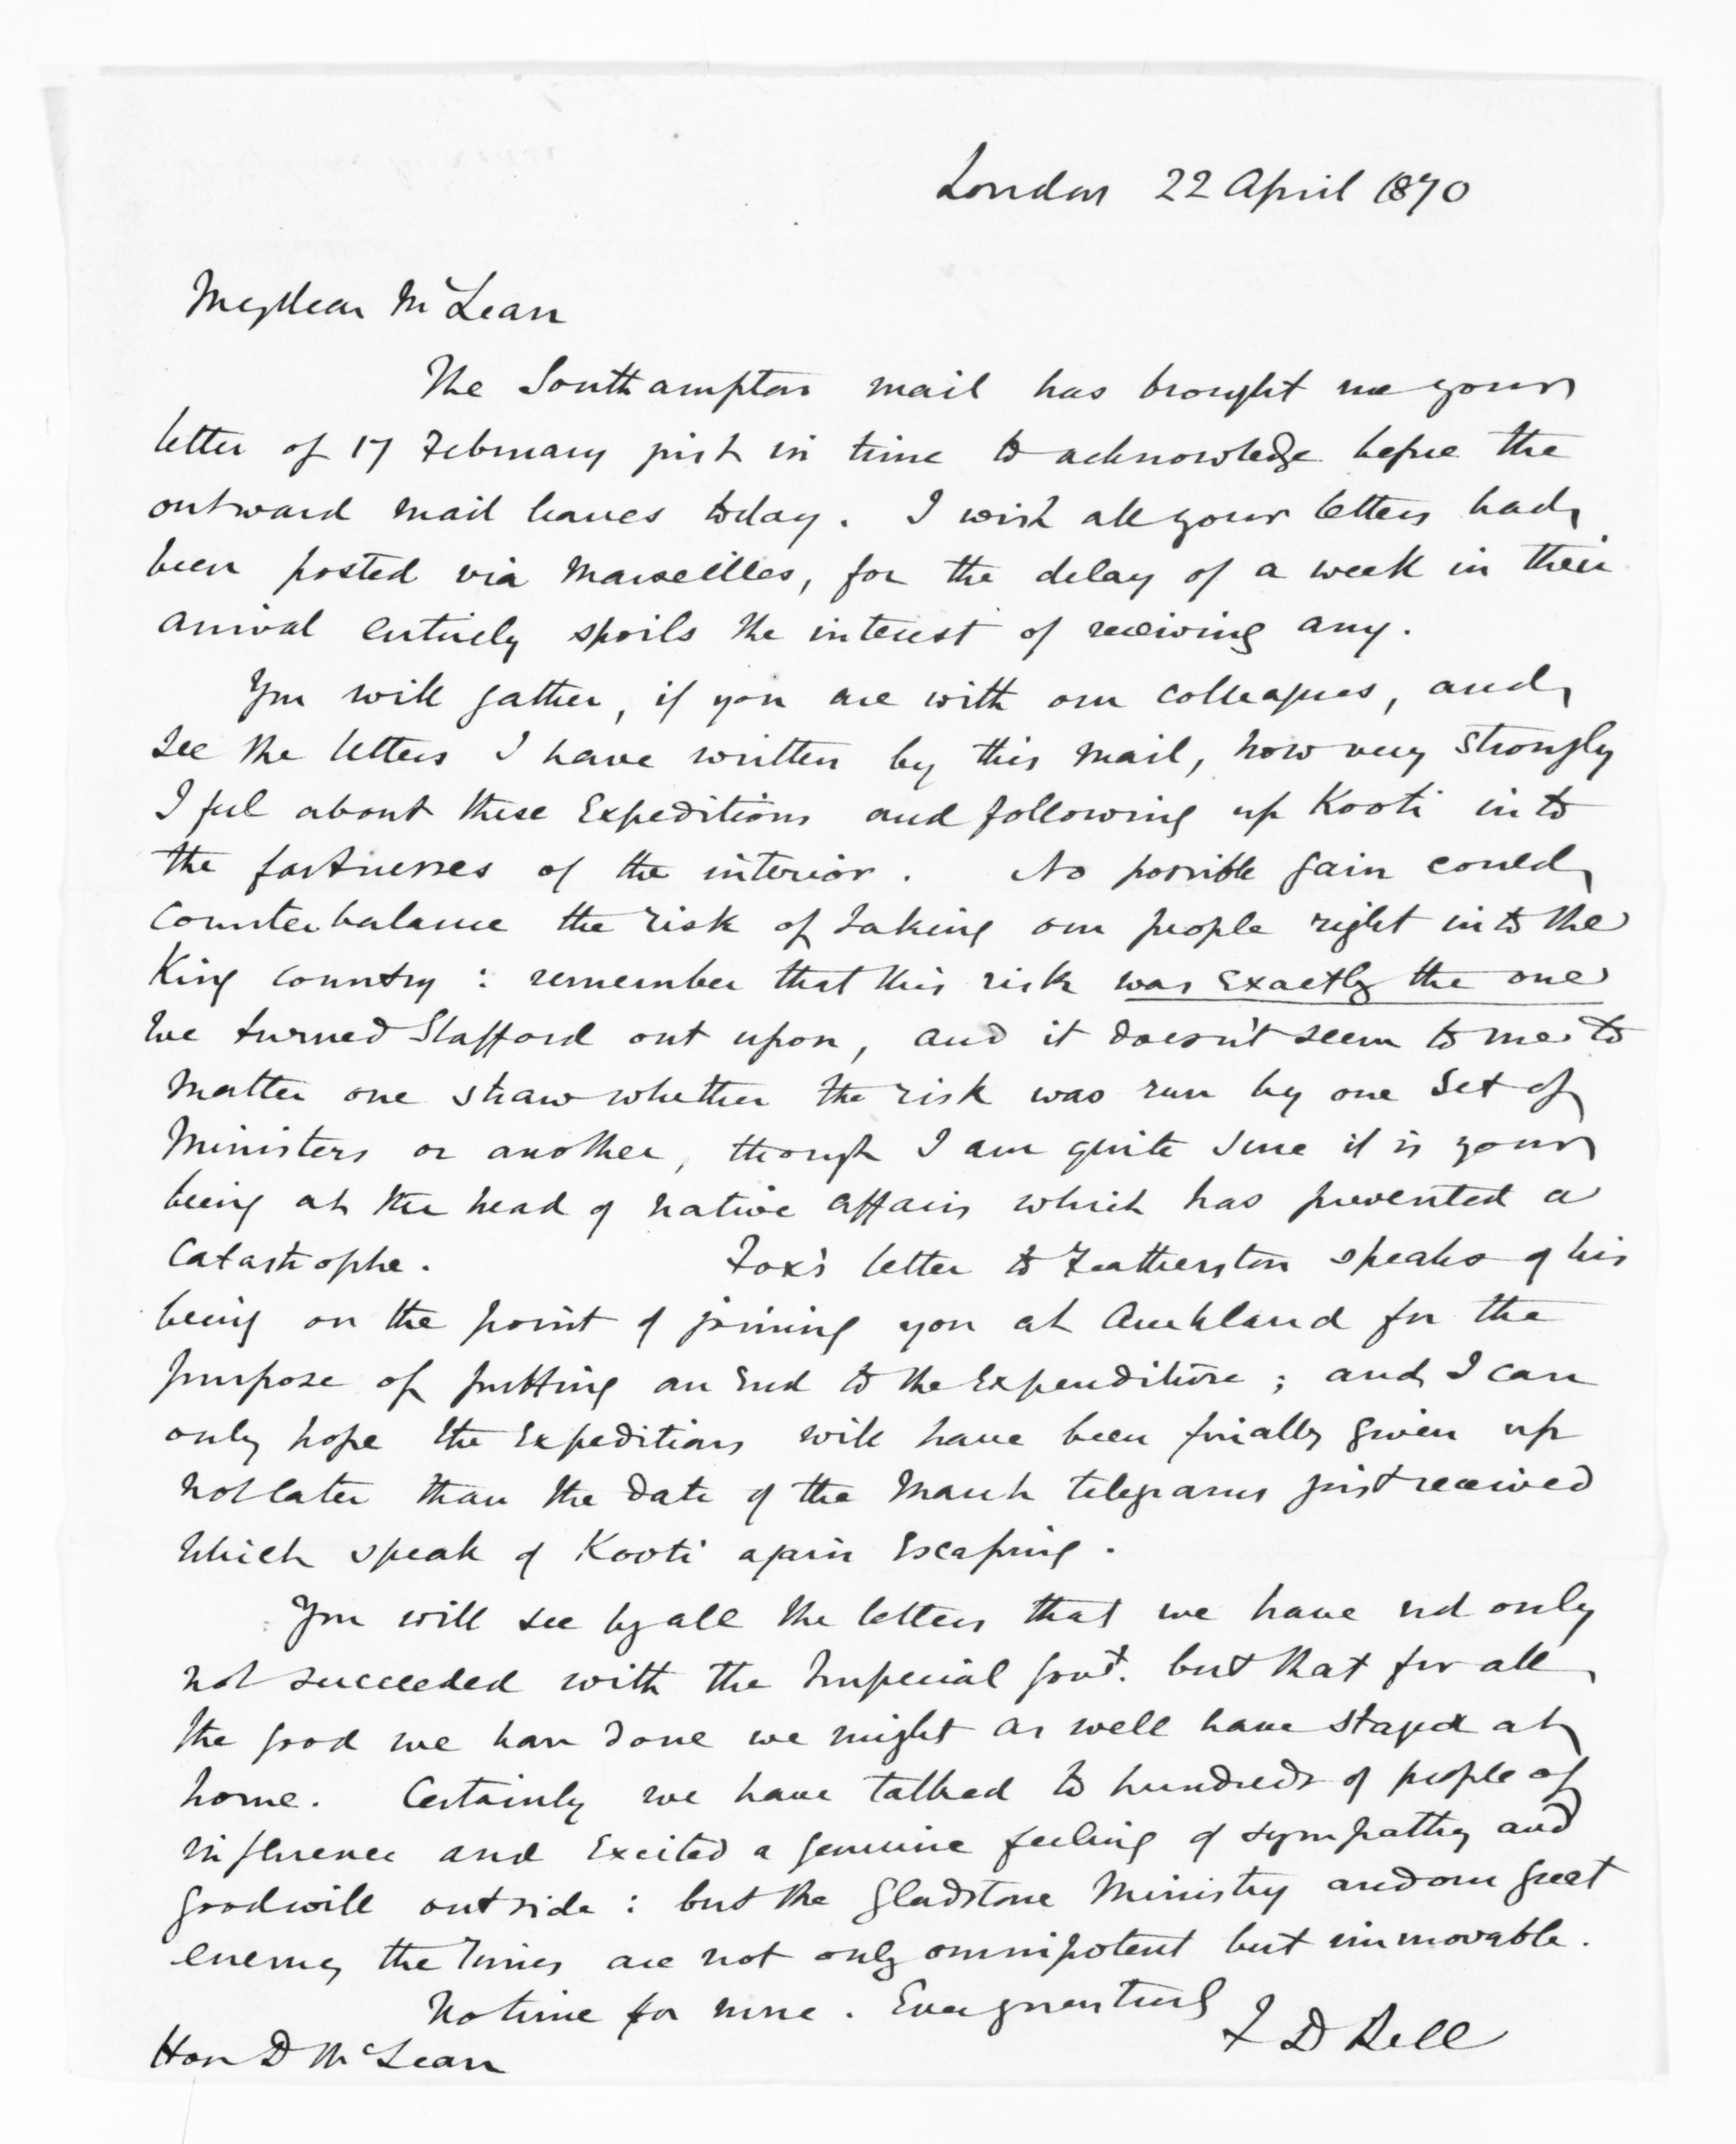 London 22 April 1870
My dear McLean
The Southampton mail has brought me your
letter of 17 February just in time to acknowledge before the
outward mail leaves today. I wish all your letters had
been posted via Marseilles, for the delay of a week in their
arrival entirely spoils the interest of receiving any.
You will gather, if you are with our colleagues, and
see the letters I have written by this mail, how very strongly
I feel about these Expeditions and following up Kooti into
the fastnesses of the interior. No possible gain could
counterbalance the risk of taking our people right into the
King country: remember that this risk was exactly the one
we turned Stafford out upon, and it doesn't seem to me to
matter one straw whether the risk was run by one set of
Ministers or another, though I am quite sure it is your
being at the head of native affairs which has prevented a
Catastrophe. Fox's letter to Featherston speaks of his
being on the point of joining you at Auckland for the
purpose of putting an End to the Expenditure; and I can
only hope the Expeditions will have been finally given up
not later than the date of the March telegrams just received
which speak of Kooti again Escaping.
You will see by all the letters that we have not only
not succeeded with the Imperial Govt. but that for all
the good we have done we might as well have stayed at
home. Certainly we have talked to hundreds of people of
influence and Excited a genuine feeling of sympathy and
goodwill outside: but the Gladstone Ministry and our great
enemy the Times are not only omnipotent but immovable.
No time for more. Ever yours truly
F D Bell
Hon D McLean